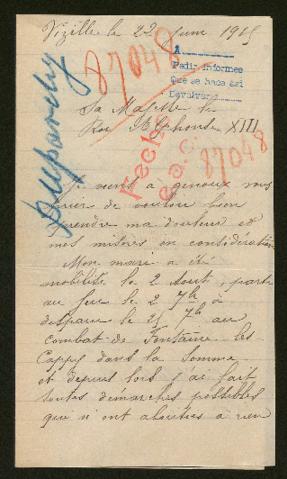 Vizille le 22 Juin 1915
87048
1
Pedir informes
Que se haga así
Devuelvase
Sa Majesté le
Roi Alphonse XIII
Hecho
87048
Je viens à genoux vous
prier de vouloir bien
prendre ma douleur et
mes misères en considération
Mon mari a été
mobilisé le 2 Aout, parti
au feu le 2 7bre à
disparu le 25 7bre au
combat de Fontaine les
Cappy dans la Somme
et depuis lors j'ai fait
toutes demarches possibles
qui n'ont abouties à rien